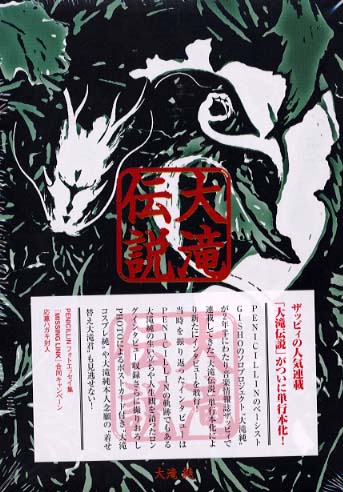 大滝
伝説
ザッピィの人気連載
「大滝伝説」がついに単行本化！
PENICILLINのベーシスト
GISHOのソロプロジェクト"大滝純"
が2年半にわたり音楽情報誌ザッピィで
連載してきた「大滝伝説」単行本化によ
り新たにインタビューを敢行！
当時を振り返ったインタビューは
PENICILLINの軌跡でもある
大滝純の生い立ちや人生観を語ったロン
グインタビュー収録さらに撮りおろし
PHOTOによるポストカード付き"大滝
コスプレ純"や大滝純本人念願の"着せ
替え大滝君"も見逃せない！
PENICILLINフォトエッセイ集
「MISSING LINK」合同キャンペーン
応募ハガキ封入
大滝 純